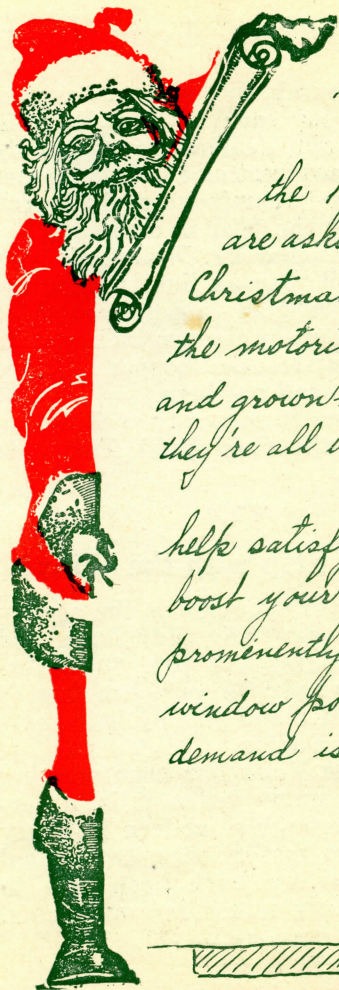 the
are ask
Christma
the motori
and grown-
they're all
help satisf
boost your
prominently
window po
demand is